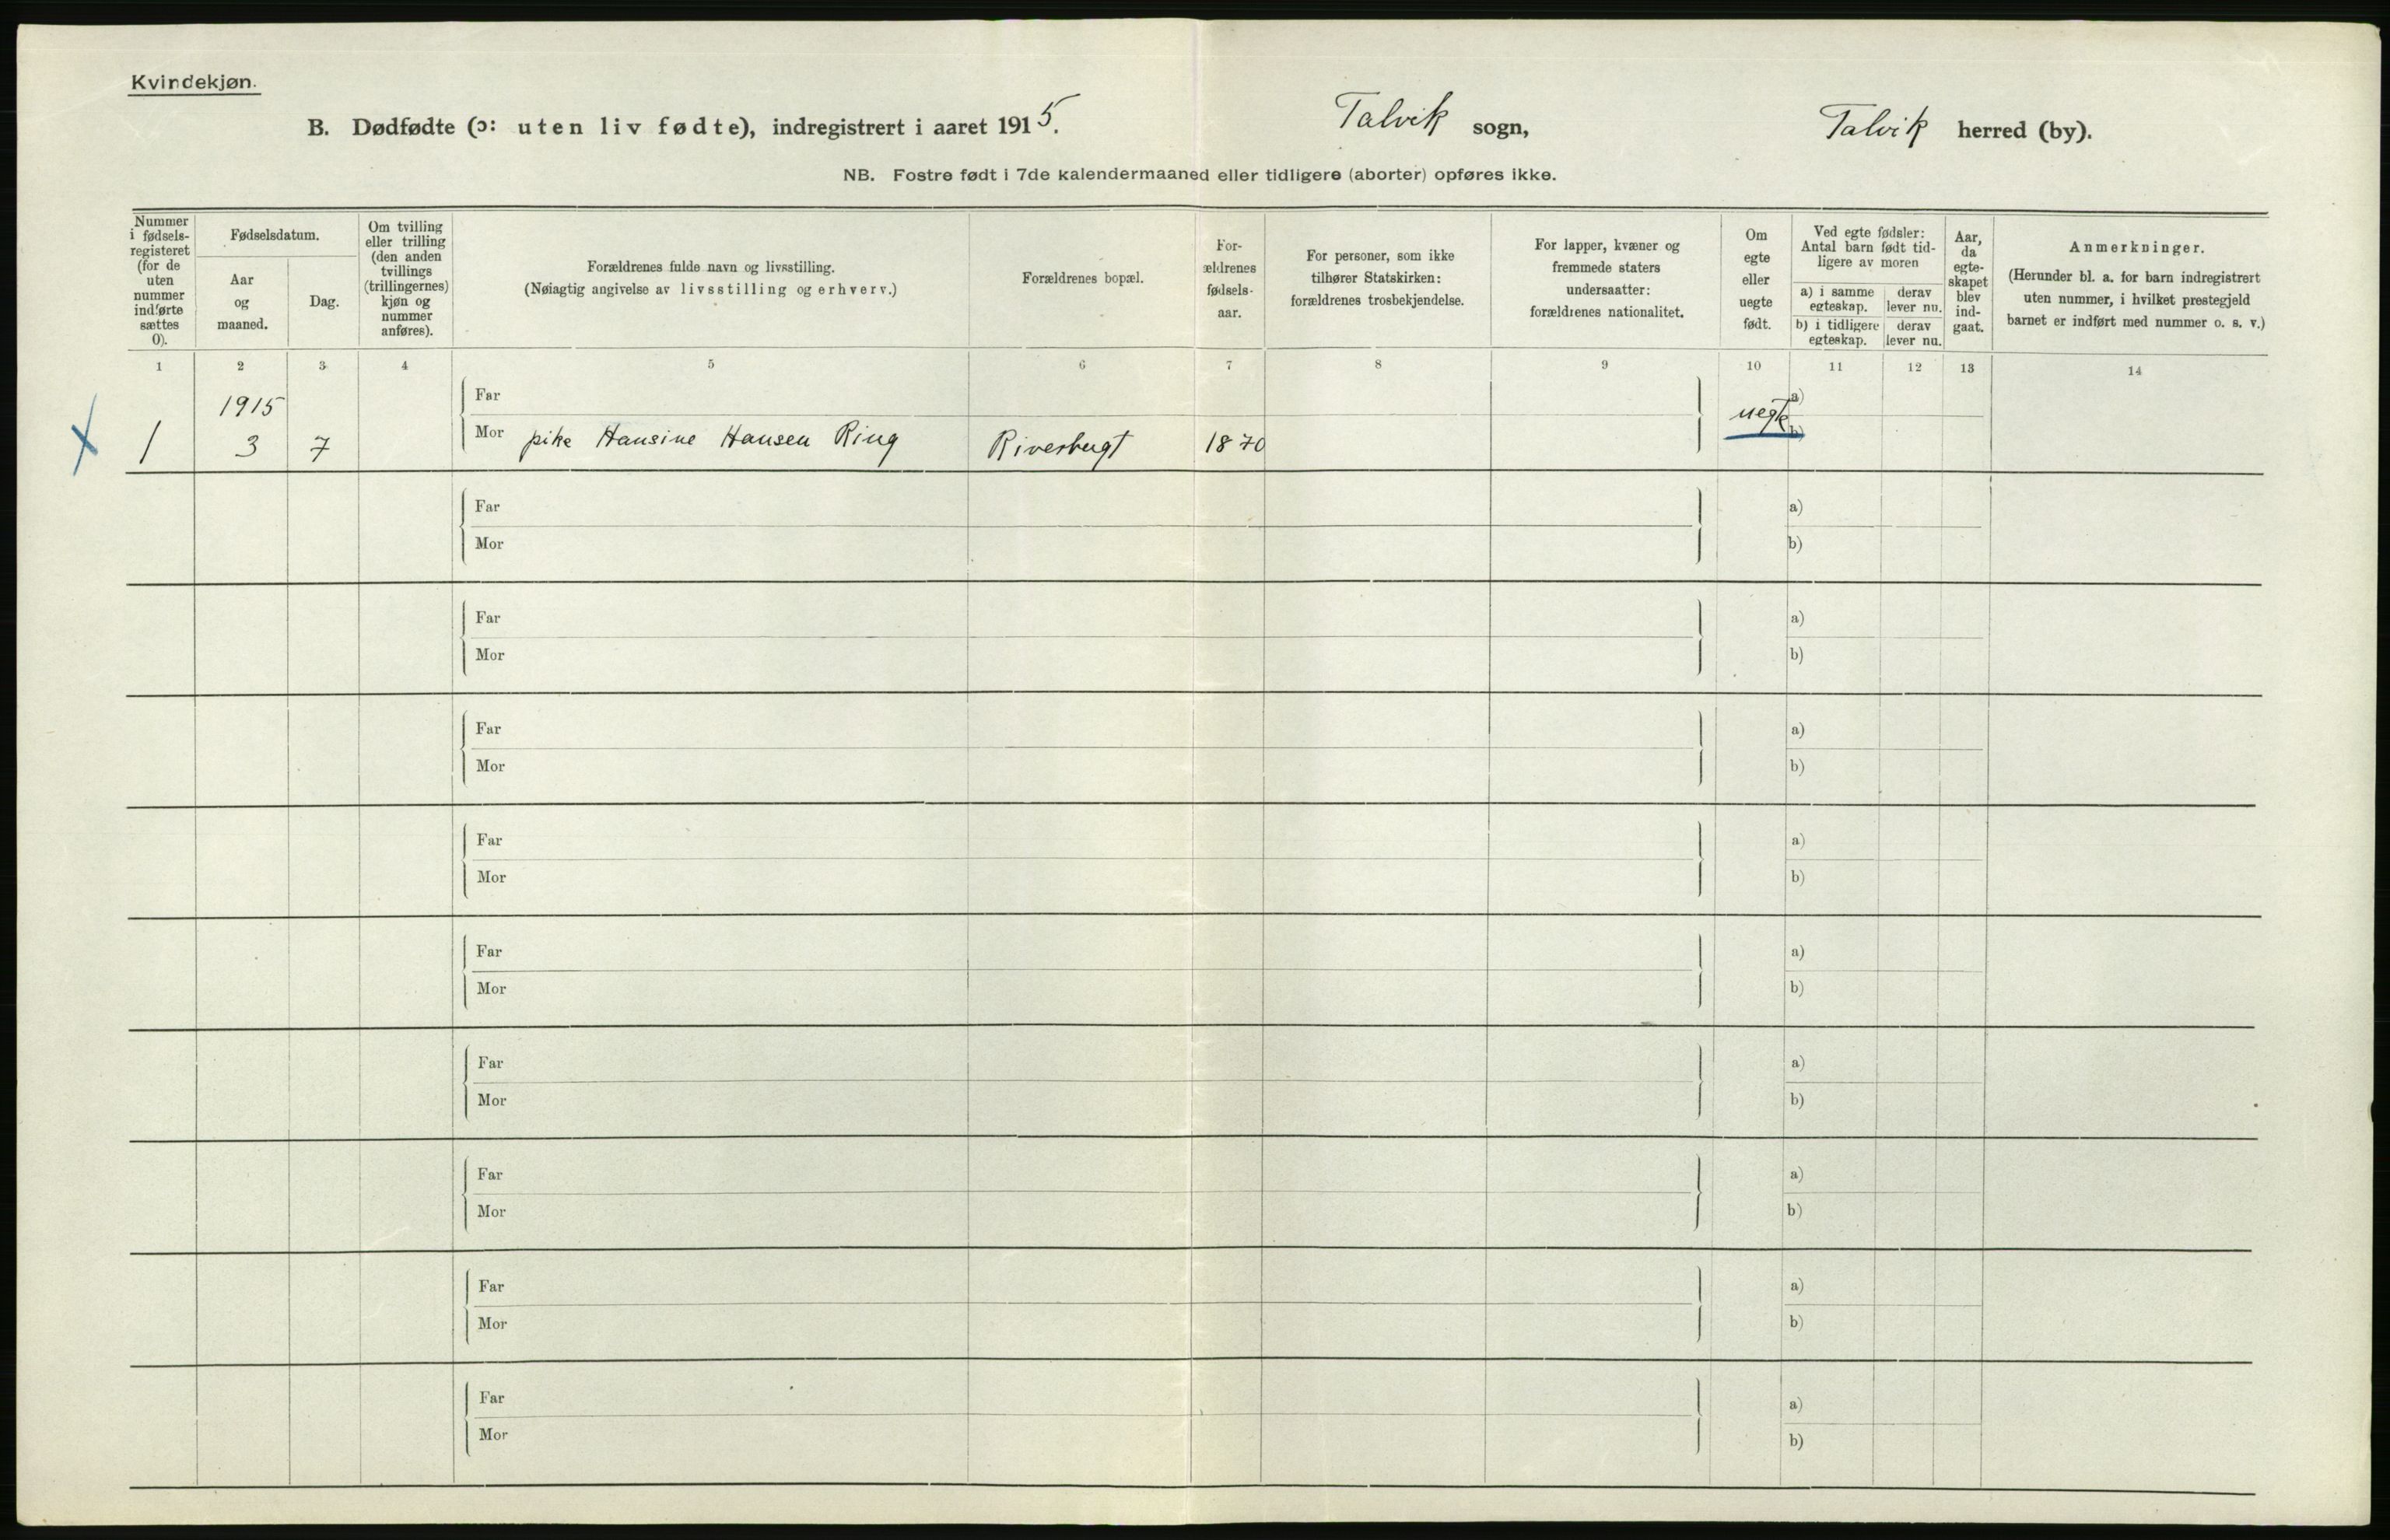 Kvindekjøn.
B. Dødfødte (ɔ: uten liv fødte), indregistrert i aaret 1915. Talvik sogn, Talvik herred (by).
NB. Fostre født i 7de kalendermaaned eller tidligere (aborter) opføres ikke.
Nummer
i fødsels-
registeret
(for de
uten
nummer
indførte
sættes
0).
Fødselsdatum.
Aar
og
maaned.
Dag.
Om tvilling
eller trilling
(den anden
tvillings
(trillingernes)
kjøn og
nummer
anføres).
Forældrenes fulde navn og livsstilling.
(Nøiagtig angivelse av livsstilling og erhverv.)
Forældrenes bopæl.
For-
ældrenes
fødsels-
aar.
For personer, som ikke
tilhører Statskirken:
forældrenes trosbekjendelse.
For lapper, kvæner og
fremmede staters
undersaatter:
forældrenes nationalitet.
Om
egte
eller
uegte
født.
Ved egte fødsler:
Antal barn født tid-
ligere av moren
a) i samme
egteskap.
derav
lever nu.
b) i tidligere
egteskap.
derav
lever nu.
Aar,
da
egte-
skapet
blev
ind-
gaat.
Anmerkninger.
(Herunder bl. a. for barn indregistrert
uten nummer, i hvilket prestegjeld
barnet er indført med nummer o. s. v.)
1 2 3 4 5 6 7 8 9 10 11 12 13 14
1915 Far uegte a)
X 1 3 7 Mor pike Hansine Hansen Ring 1870 b)
Far a)
Mor b)
Far a)
Mor b)
Far a)
Mor b)
Far a)
Mor b)
Far a)
Mor b)
Far a)
Mor b)
Far a)
Mor b)
Far a)
Mor b)
Far a)
Mor b)